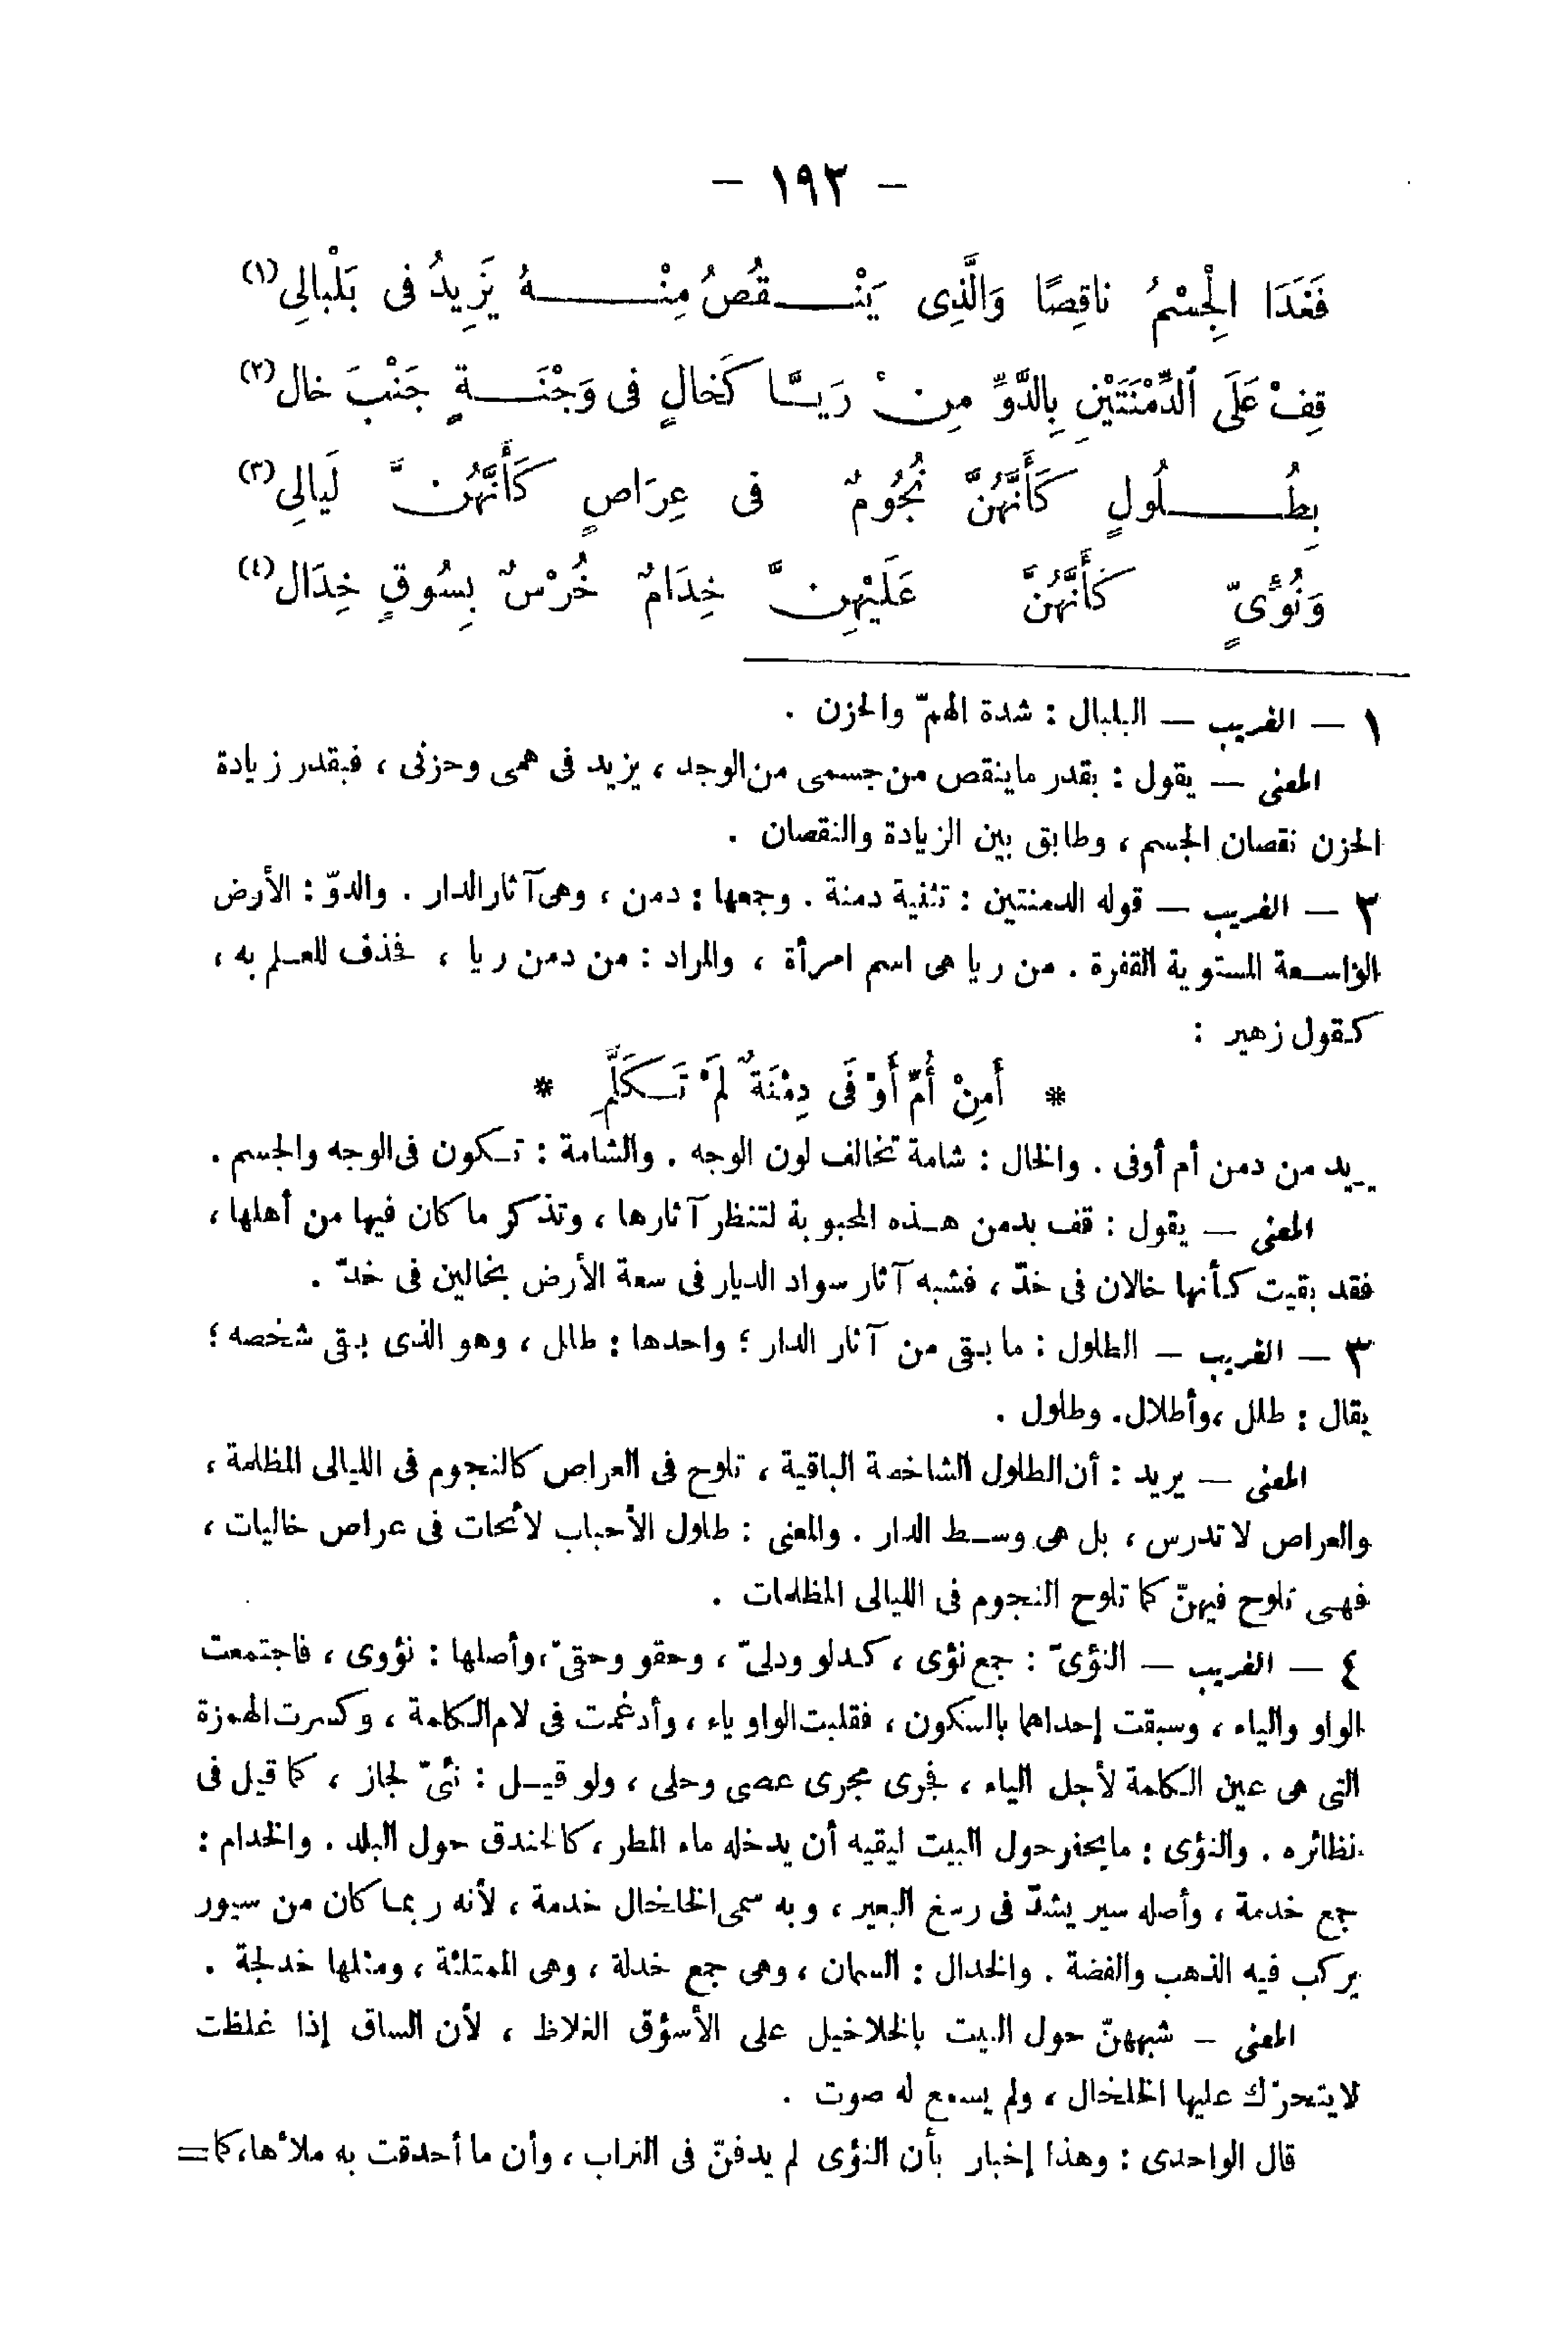 – ١٩٣ –
فَغَدَا الْجِسْمُ ناقِصًا وَالَّذِى يَنْـقُصُ مِنْـهُ يَزِيدُ فى بَلْبالِى (١)
قِفْ عَلَى الدِّمْنَتَيْنِ بِالدَّوِّ مِنْ رَيَّا كَخالٍ فى وَجْنَـةٍ جَنْبَ خالِ (٢)
بِطُـلُولٍ كَأَنَّهُنَّ نُجُومٌ فى عِرَاصٍ كَأَنَّهُنَّ لَيالِى (٣)
وَنُؤِىٍّ كَأَنَّهُنَّ عَلَيْهِنَّ خِدَامٌ خُرْسٌ بِسُوقٍ خِدَالِ (٤)
١ – الغريب – البلبال : شدة الهمّ والحزن .
المعنى – يقول : بقدر ماينقص من جسمى من الوجد ، يزيد فى همى وحزنى ، فبقدر زيادة
الحزن نقصان الجسم ، وطابق بين الزيادة والنقصان .
٢ – الغريب – قوله الدمنتين : تثنية دمنة . وجمعها : دمن ، وهى آثار الدار . والدوّ : الأرض
الواسعة المستوية القفرة . من ريا هى اسم امرأة ، والمراد : من دمن ريا ، فحذف للعلم به ،
كقول زهير :
* أَمِنْ أُمِّ أَوْفَى دِمْنَةٌ لَمْ تَكَلَّمِ *
يريد من دمن أم أوفى . والخال : شامة تخالف لون الوجه . والشامة : تكون فى الوجه والجسم .
المعنى – يقول : قف بدمن هذه المحبوبة لتنظر آثارها ، وتذكر ما كان فيها من أهلها ،
فقد بقيت كأنها خالان فى خدّ ، فشبه آثار سواد الديار فى سعة الأرض بخالين فى خدّ .
٣ – الغريب – الطلول : ما بقى من آثار الدار ؛ واحدها : طلل ، وهو الذى بقى شخصه ؛
يقال : طلل ، وأطلال . وطلول .
المعنى – يريد : أن الطلول الشاخصة الباقية ، تلوح فى العراص كالنجوم فى الليالى المظلمة ،
والعراص لا تدرس ، بل هى وسط الدار . والمعنى : طلول الأحباب لائحات فى عراص خاليات ،
فهى تلوح فيهنّ كما تلوح النجوم فى الليالى المظلمات .
٤ – الغريب – النؤىّ : جمع نؤى ، كدلو ودلىّ ، وحقو وحقىّ ، وأصلها : نؤوى ، فاجتمعت
الواو والياء ، وسبقت إحداهما بالسكون ، فقلبت الواو ياء ، وأدغمت فى لام الكلمة ، وكسرت الهمزة
التى هى عين الكلمة لأجل الياء ، فجرى مجرى عصى وحلى ، ولو قيل : نئىّ لجاز ، كما قيل فى
نظائره . والنؤى : مايحفر حول البيت ليقيه أن يدخله ماء المطر ، كالخندق حول البلد . والخدام :
جمع خدمة ، وأصله سير يشدّ فى رسغ البعير ، وبه سمى الخلخال خدمة ، لأنه ربما كان من سيور
يركب فيه الذهب والفضة . والخدال : السمان ، وهى جمع خدلة ، وهى الممتلئة ، ومثلها خدلجة .
المعنى – شبههنّ حول البيت بالخلاخيل على الأسؤق الغلاظ ، لأن الساق إذا غلظت
لايتحرّك عليها الخلخال ، ولم يسمع له صوت .
قال الواحدى : وهذا إخبار بأن النؤى لم يدفنّ فى التراب ، وأن ما أحدقت به ملأها ، كما =